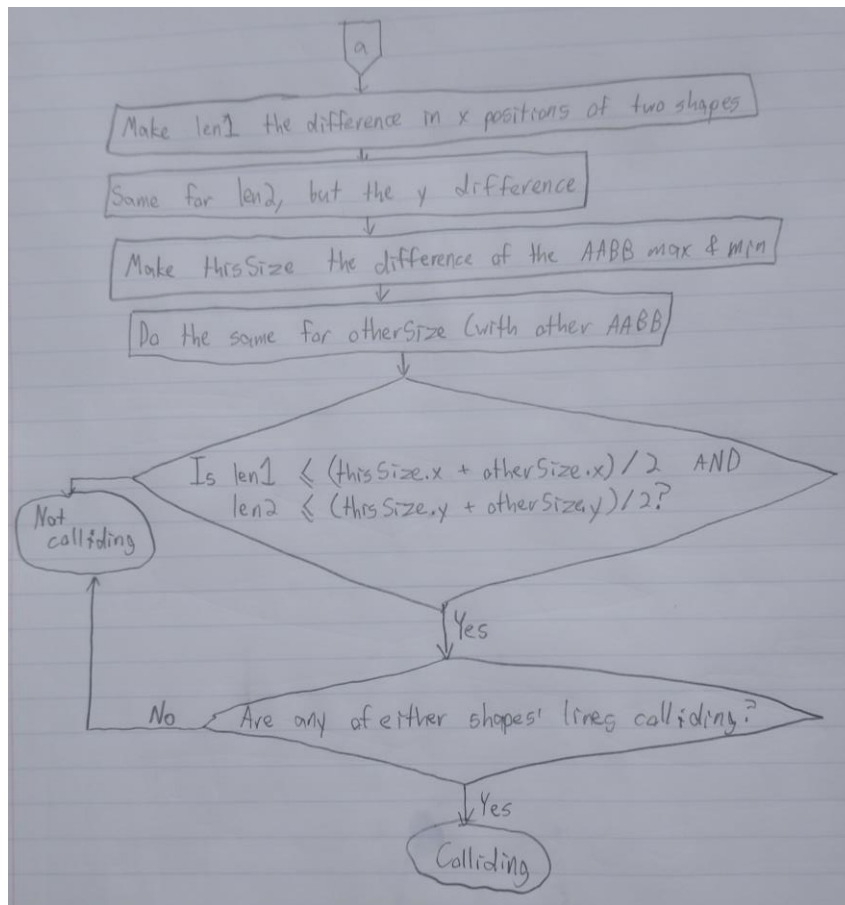 a
Make len1 the difference in x positions of two shapes
Same for len2, but the y difference
Make thisSize the difference of the AABB max & min
Do the same for otherSize (with other AABB)
Is len1 ⩽ (thisSize.x + otherSize.x)/2 AND
len2 ⩽ (thisSize.y + otherSize.y)/2?
Not
colliding
Yes
Are any of either shapes' lines colliding?
No
Yes
Colliding